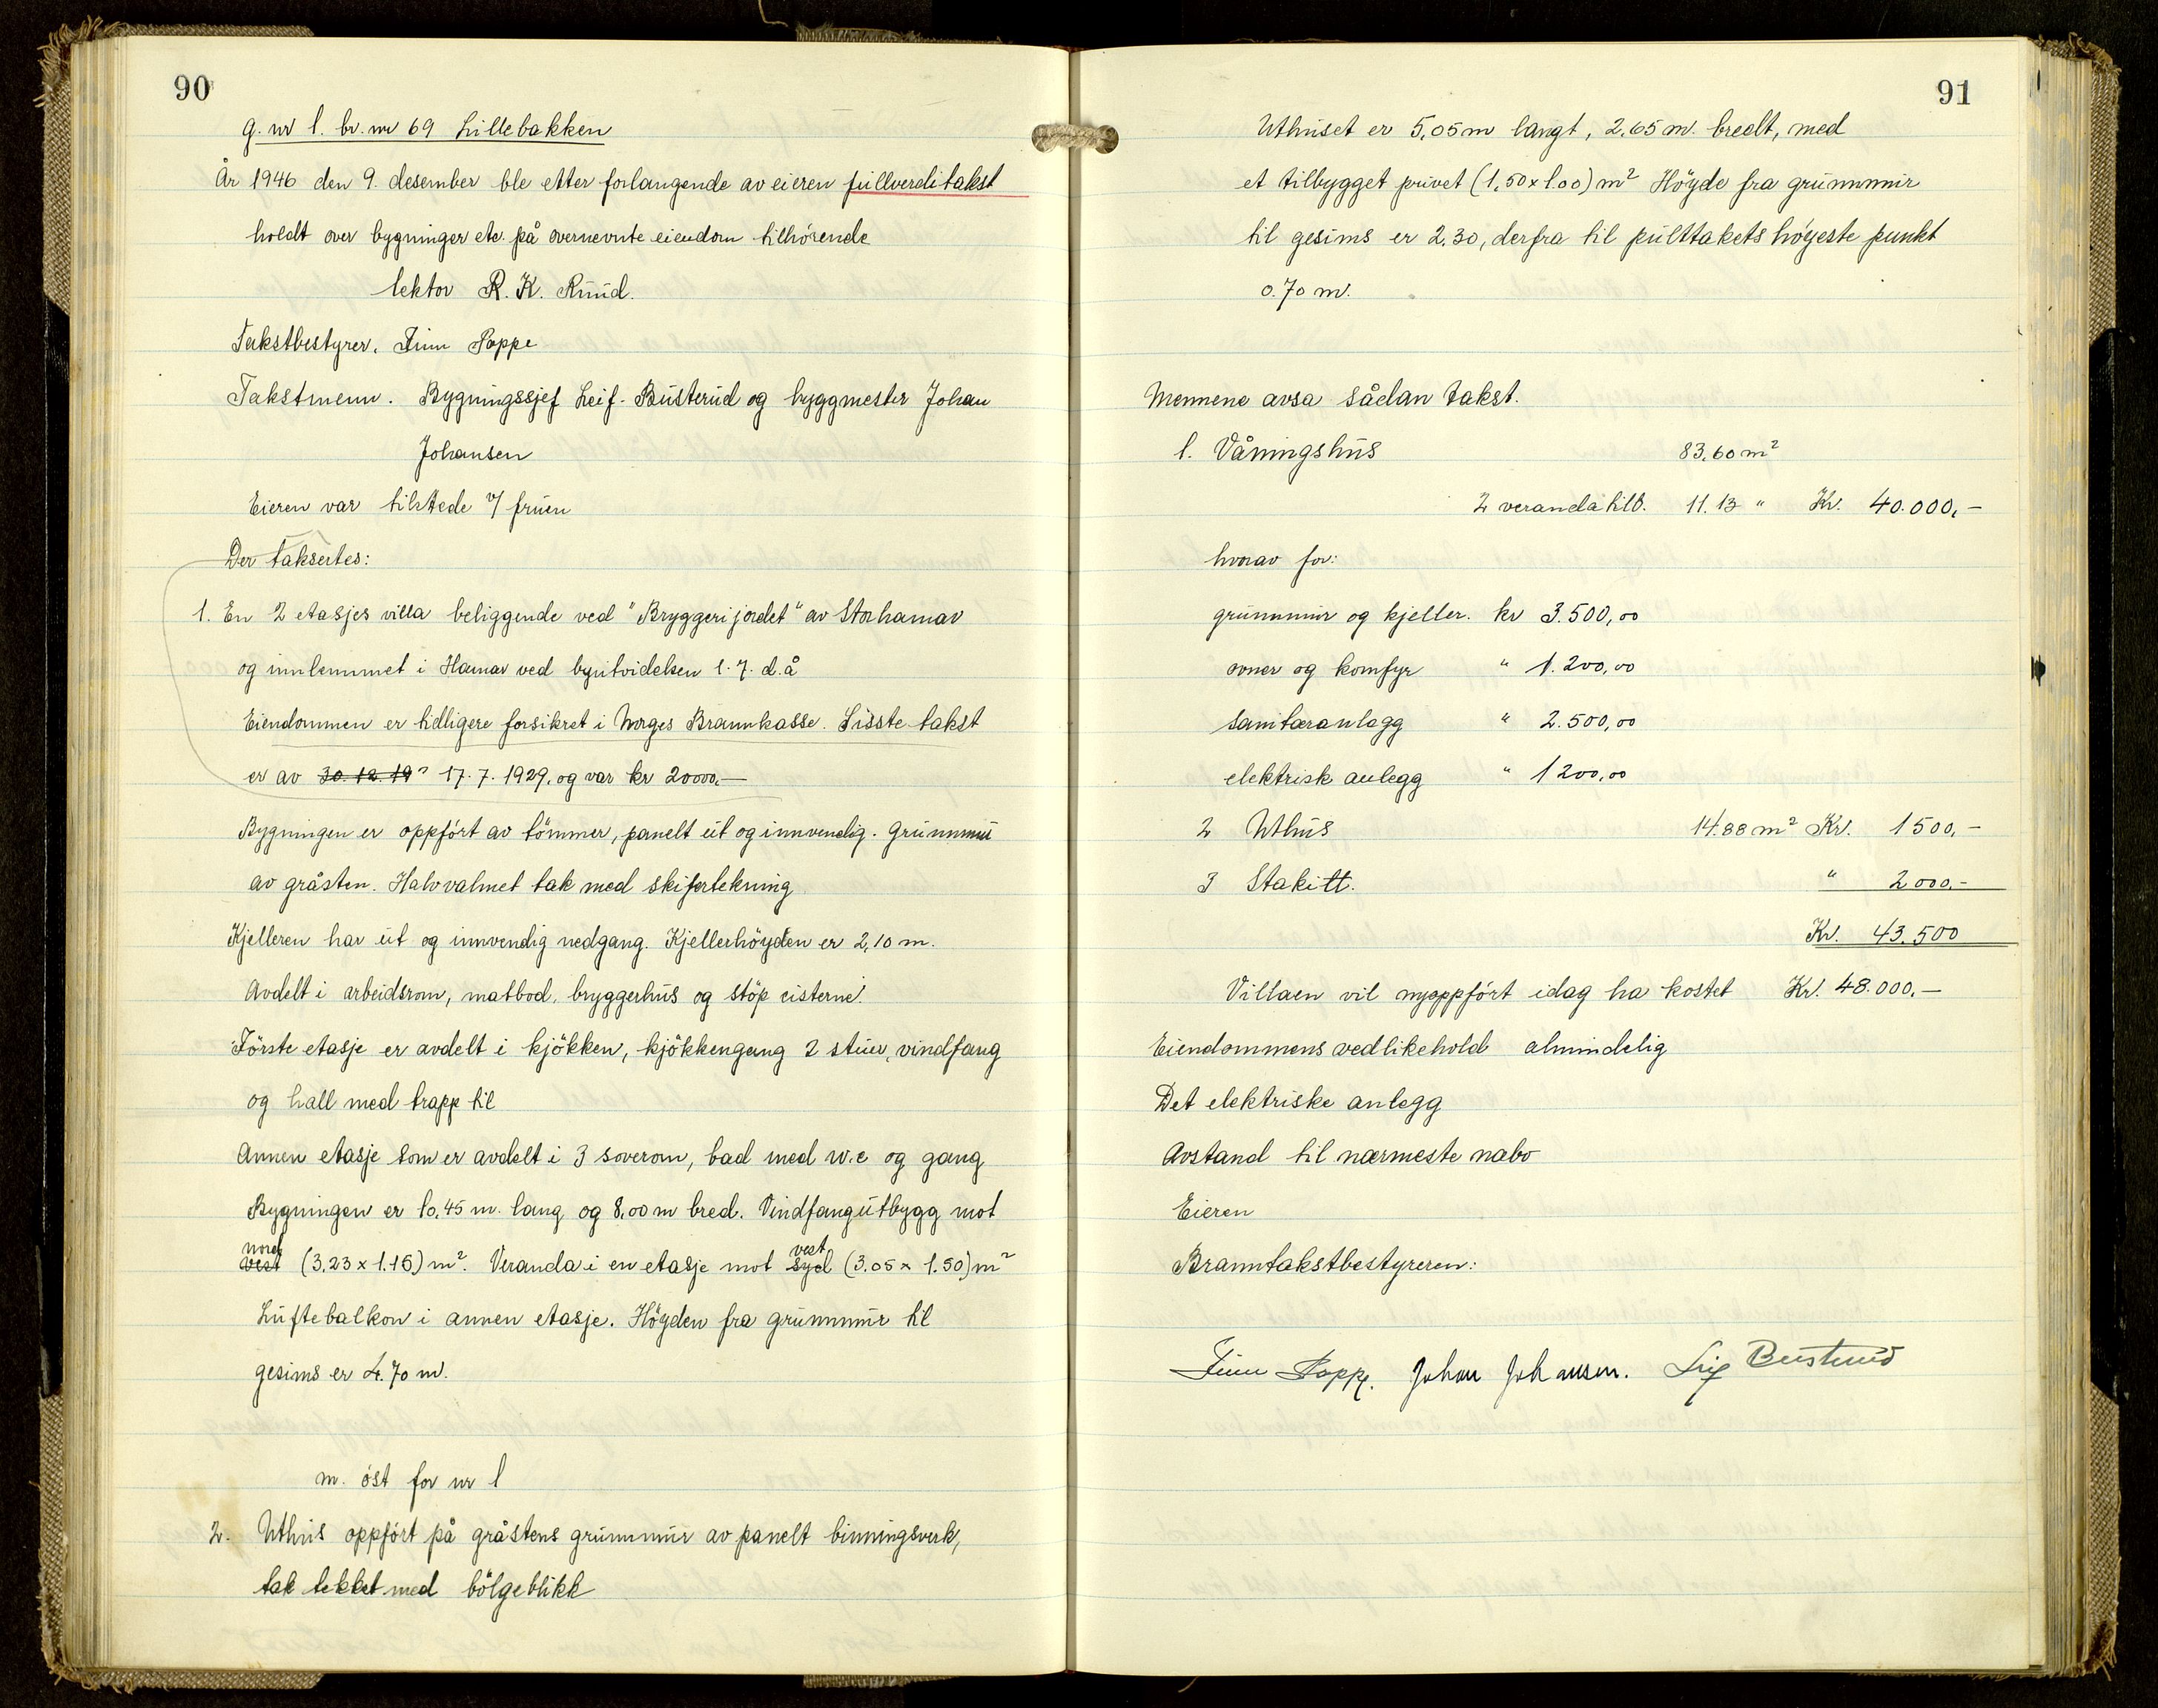 90
g. nr 1. br. nr 69 Lillebakken
År 1946 den 9. desember ble etter forlangende av eieren fullverditakst
holdt over bygninger etc. på overnevnte eiendom tilhörende
lektor R. K. Ruud.
Takstbestyrer. Finn Poppe
Takstmenn. Bygningssjef Leif Busterud og byggmester Johan
Johansen
Eieren var tilstede v/ fruen
Der taksertes:
1. En 2 etasjes villa beliggende ved "Bryggerijordet" av Storhamar
og innlemmet i Hamar ved byutvidelsen 1.7. d.å
Eiendommen er tidligere forsikret i Norges Brannkasse. Sisste takst
er av 30.12.19 17.7.1929. og var kr 20000,—
Bygningen er oppfört av tömmer, panelt ut og innvendig. Grunnmur
av gråsten. Halvvalmet tak med skifertekning
Kjelleren har ut og innvendig nedgang. Kjellerhöyden er 2,10 m.
Avdelt i arbeidsrom, matbod, bryggerhus og stöp cisterne.
Förste etasje er avdelt i kjökken, kjökkengang 2 stuer, vindfang
og hall med trapp til
Annen etasje som er avdelt i 3 soverom, bad med w.c og gang
Bygningen er 10,45 m. lang og 8,00 m bred. Vindfangutbygg mot
nord vest
vest (3,23 x 1.15) m². Veranda i en etasje mot syd (3.05 x 1.50) m²
Luftebalkon i annen etasje. Höyden fra grunnmur til
gesims er 4.70 m.
m. öst for nr 1
2. Uthus oppfört på gråstens grunnmur av panelt binningsverk,
tak tekket med bölgeblikk
91
Uthuset er 5,05 m langt, 2,65 m. bredt, med
et tilbygget privet (1,50 x 1.00) m² Höyde fra grunnmur
til gesims er 2,30, derfra til pulttakets höyeste punkt
0.70 m.
Mennene avsa sådan takst.
1. Våningshus 83,60 m²
2 veranda tilb. 11.13 " Kr. 40.000,—
hvorav for:
grunnmur og kjeller. kr 3.500,00
ovner og komfyr " 1.200,00
sanitæranlagg " 2.500,00
elektrisk anlegg " 1200,00
2 Uthus 14.88 m² Kr. 1500,—
3 Stakitt. " 2000,—
Kr. 43.500
Villaen vil nyoppfört idag ha kostet Kr. 48.000,—
Eiendommens vedlikehold almindelig
Det elektriske anlegg
Avstand til nærmeste nabo
Eieren
Branntakstbestyreren:
Finn Poppe. Johan Johansen. Leif Busterud